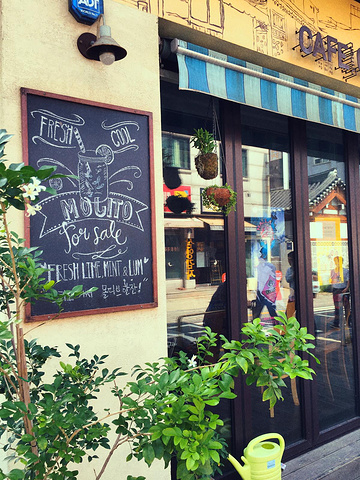 ADT
CAFE
FRESH COOL
MOJITO
for sale
"FRESH LIME, MINT & LUM"